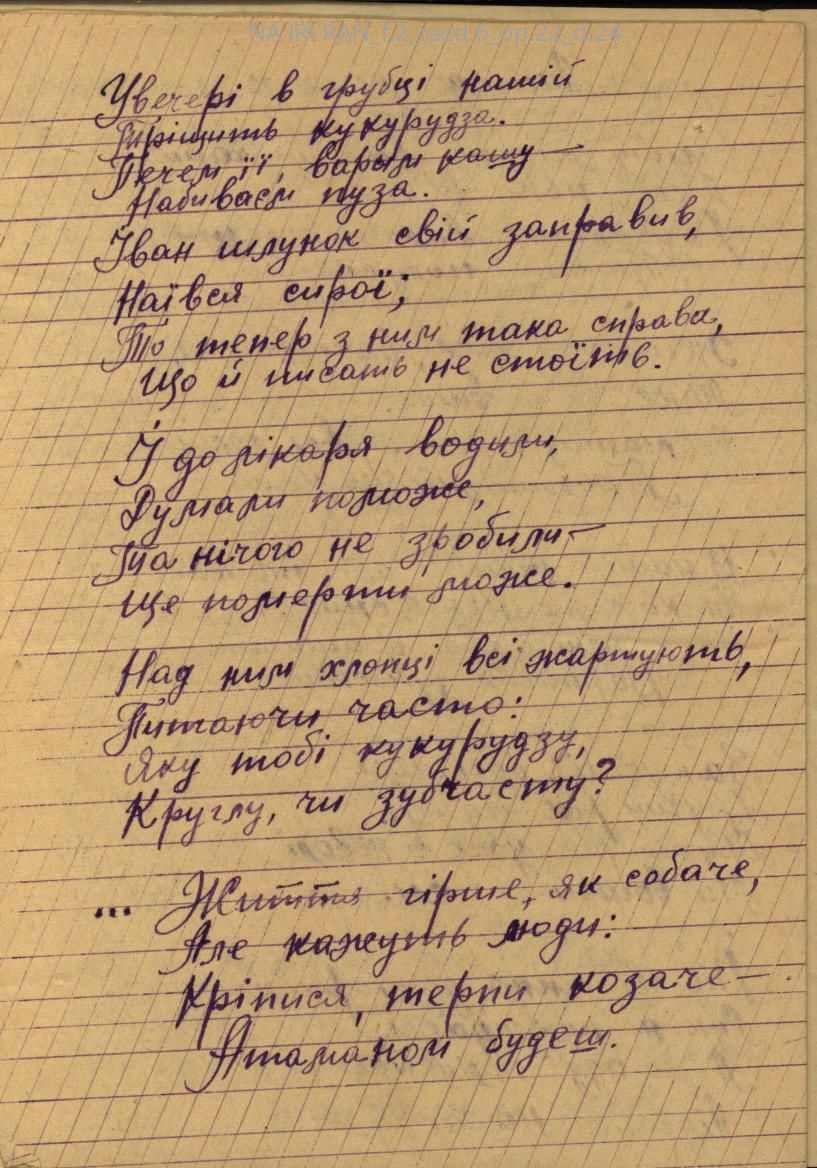 NA IRI RAN_f.2_razd.6_op.22_d.24
Увечері в грубці нашій
Тріщить кукурудза.
Печем її, варим кашу —
Набиваєм пуза.
Іван шлунок свій заправив,
Наївся сирої;
То тепер з ним така справа,
Що й писать не стоїть.
Й до лікаря водили,
Думали поможе,
Та нічого не зробили —
Ще померти може.
Над ним хлопці всі жартують,
Питаючи часто:
Яку тобі кукурудзу,
Круглу, чи зубчасту?
... Життя гірше, як собаче,
Але кажуть люди:
Кріпися, терпи козаче —
Атаманом будеш.